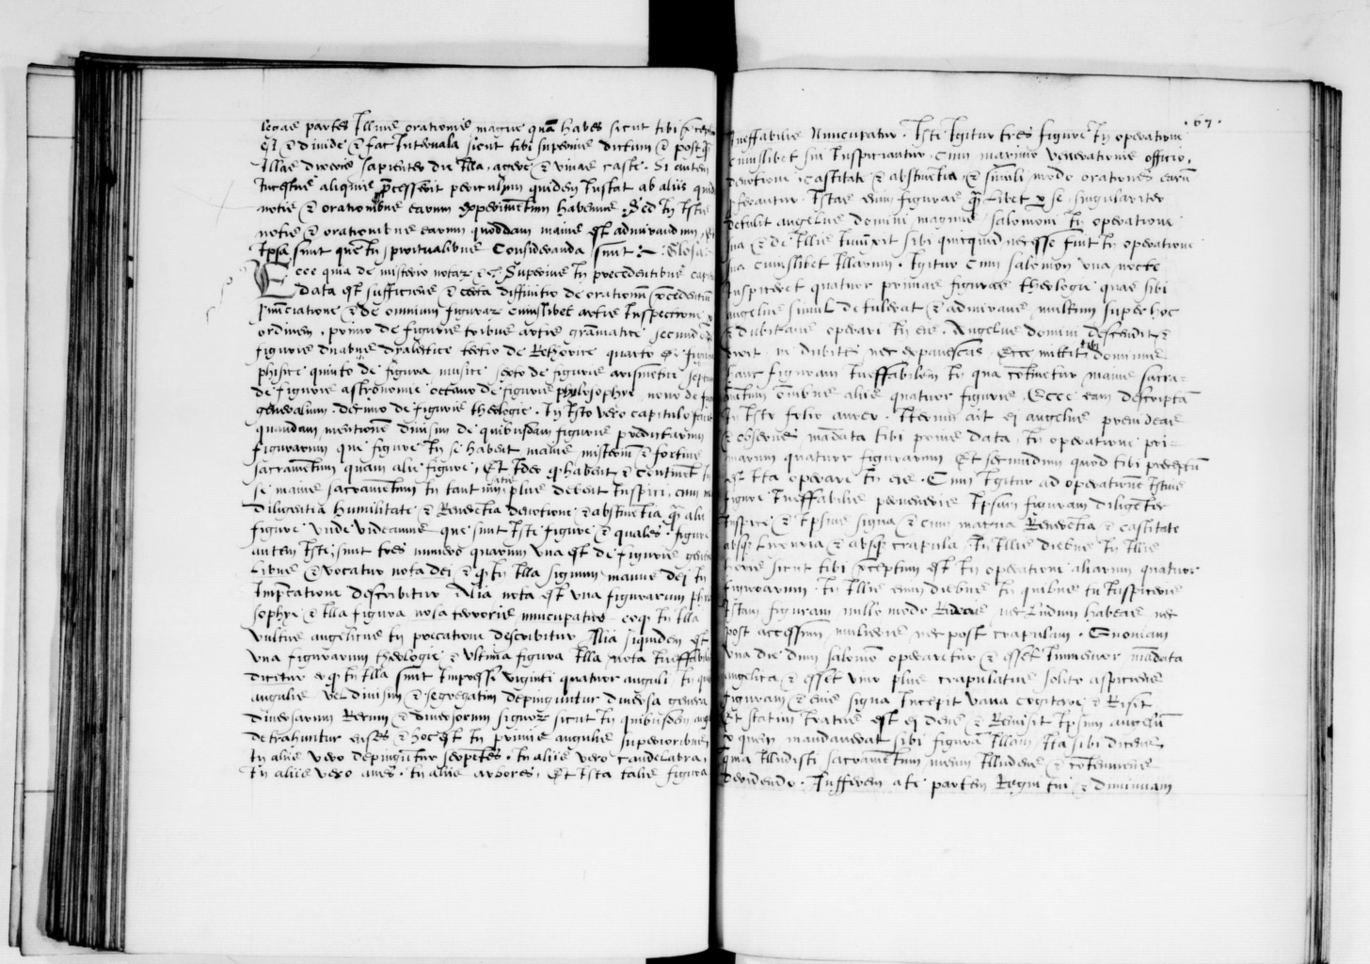 legas partes Illius orationis magne quã habes sicut tibi
est & divide & fac Intervala sicut tibi superius dictum & postq̃
Illas diceris sapienter die Illa . & vivas caste . Si autem
Incestus aliquis p̃cesserit periculum quidem Instat ab aliis
notis & orationibus earum experimentum habemus . Sed In Istis
notis & orationibus earum quoddam maius est admirandum
Ipsa sunt que In spiritualibus Consideranda sunt .
Ecce quia de misterio notar̃ & Superius In precedentibus
data est sufficiens & certa diffinitio de orationum
& de omnium figurar̃ cuiuslibet artis Inspectione
ordinem . primo de figuris tribus artis grãmatice secundo
figuris duabus dyaletice tertio de Rethorice quarto
phisice quinto de figura musice sexto de figuris arismetice
de figuris astronomie octavo de figuris phylosophye nono de
generalium . decimo de figuris theologie . In Isto vero capitulo
quandam mentionẽ divisim de quibusdam figuris predictarum
figurarum que figure In se habent maius misterium & fortius
sacramentum quam alie figure , Et Ideo q̃ habent & continent In
se maius sacramentum In tantum plus debent Inspici , cum
Diligentia humilitate & Reverentia devotione & abstinentia q̃ alie
figure . Unde videamus que sunt Iste figure & quales . figure
autem Iste , sunt tres numero quarum una est de figuris
& vocatur nota dei & q̃ In Illa signum manus dei In
describitur . Alia nota est una figurarum
sophye & Illa figura nota terroris nuncupatur eoq̃ In Illa
vultus angelicus In describitur Alia siquidem est
una figurarum theologie & ultima figura Illa nota
dicitur eoq̃ In Illa sunt Impressi viginti quatuor anguli In
angulis vel divisim & segregatim depinguntur diversa genera
diversarum Rerum & diversorum signor̃ sicut In quibusdam
detrahuntur enses & hoc est In primis angulis superioribus
In aliis vero depinguntur serpẽtes . In aliis vero candelabra ,
In aliis vero aves . In aliis arbores , Et Ista talis figura
. 67 .
Ineffabilis Nuncupatur . Iste Igitur tres figure In operatione
cuiuslibet sui Inspiciantur . Cum maximo venerationis officio ,
devotione castitate & abstinentia & simili modo orationes earũ
. Istas enim figuras q̃ libet p se singulariter
detulit angelus domini magnus salomoni In operatione
sua & de Illis Iunxit sibi quicquid necesse fuit In operatione
sua cuiuslibet Illarum . Igitur cum salomon una nocte
Inspiceret quatuor primas figuras theologie quas sibi
angelus simul detulerat & admirans multum super hoc
& dubitans operari In eis . Angelus domini descendit &
dixit ne dubites nec expavescas . Ecce mittit tibi dominus
hanc figuram Ineffabilem In qua cõtinetur maius sacra-
mentum omnibus aliis quatuor figuris . Ecce eam descriptã
In Isto folio aureo . Iterum ait ei angelus
& observes mãdata tibi prius data , In operatione pri-
marum quatuor figurarum Et secundum quod tibi preceptũ
est Ita operare In eis . Cum Igitur ad operationẽ Istius
figure Ineffabilis perveneris Ipsam figuram diligẽter
Inspice & Ipsius signa & cum magna Reverẽtia & castitate
absq̃ luxuria & absq̃ crapula . In Illis diebus In Illis
sicut tibi preceptum est In operatione aliarum quatuor
figurarum . In Illis enim diebus In quibus tu Inspicies
Istam figuram nullo modo Rideas nec ludum habeas nec
post accessum mulieris nec post crapulam . Quoniam
una die dum salomõ operaretur & esset Immemor mãdata
angelica & esset vino plus crapulatus solito aspiciens
figuram & eius signa Incepit vana cogitare & Risit
Et statim Iratus est ei deus & Remisit Ipsum angelũ
p quem mandaverat sibi figurã Illam , Ita sibi dicens
quia Illudisti sacramẽtum meum Illudens & cõtemnens
deridendo . Aufferem a te partem Regni tui & diminuam